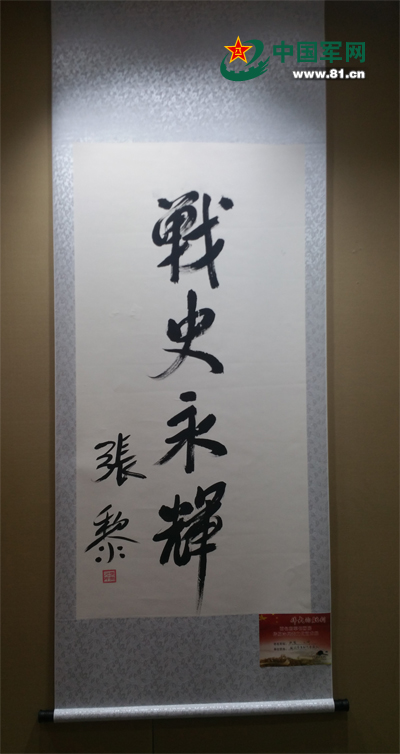 中国军网
www.81.cn
戦史永輝
張黎